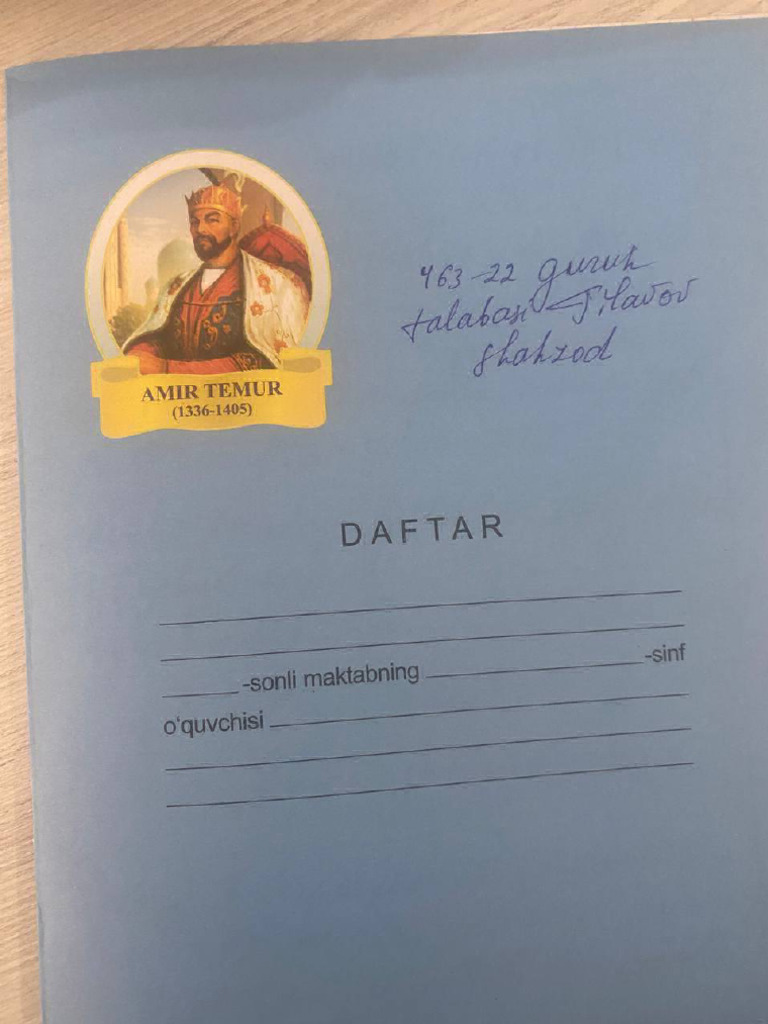 463-22 guruh
talabasi Tilavov
Shahzod
AMIR TEMUR
(1336-1405)
DAFTAR
-sonli maktabning -sinf
o'quvchisi